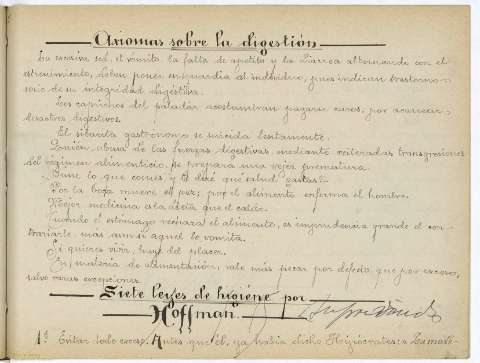 Axiomas sobre la digestión
La excesiva sed, el vómito, la falta de apetito y la diarrea alternando con el
estreñimiento, deben poner en guardia al individuo, pues indican trastorno
serio de su integridad digestiva.
Los caprichos del paladar acostumbran pagarse caros, por acarrear
desastres digestivos.
El sibarita gastrónomo se suicida lentamente.
Quien abusa de las fuerzas digestivas, mediante reiteradas transgresiones
del régimen alimenticio, se prepara una vejez prematura.
Dime lo que comes, y te diré qué salud gastas.
Por la boca muere el pez; por el alimento enferma el hombre.
Mejor medicina es la dieta que el caldo.
Cuando el estómago rechaza el alimento, es imprudencia grande el con-
trariarle, más aún si aquel lo vomita.
Si quieres vivir, huye del placer.
En materia de alimentación, vale más pecar por defecto, que por exceso,
salvo raras excepciones.
Siete leyes de higiene por
Hoffman.
1ª Evitar todo exceso. Antes que él, ya había dicho Hipócrates: "La mode-